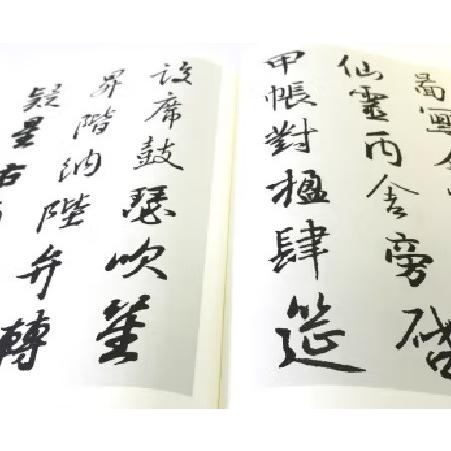 圖寫
仙靈丙舍旁啓
甲帳對楹肆筵
設席鼓瑟吹笙
昇階納陛弁轉
疑星右